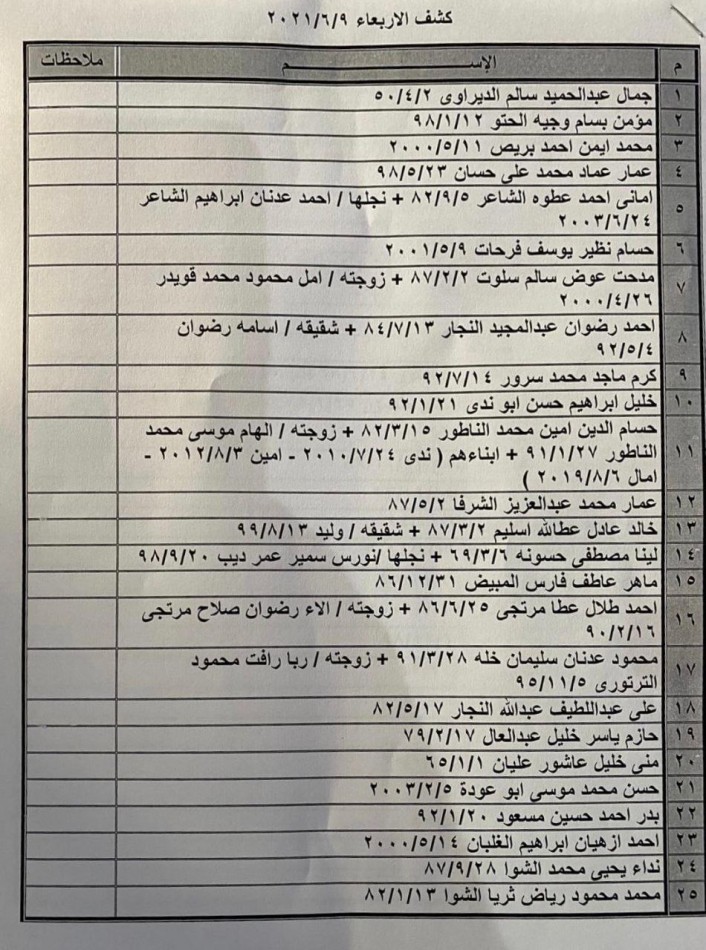 كشف الاربعاء ٢٠٢١/٦/٩
م الإســـــــــم ملاحظات
١ جمال عبدالحميد سالم الديراوى ٥٠/٤/٢
٢ مؤمن بسام وجيه الحتو ٩٨/١/١٢
٣ محمد ايمن احمد بريص ٢٠٠٠/٥/١١
٤ عمار عماد محمد على حسان ٩٨/٥/٢٣
٥ امانى احمد عطوه الشاعر ٨٢/٩/٥ + نجلها / احمد عدنان ابراهيم الشاعر
٢٠٠٣/٦/٢٤
٦ حسام نظير يوسف فرحات ٢٠٠١/٥/٩
٧ مدحت عوض سالم سلوت ٨٧/٢/٢ + زوجته / امل محمود محمد قويدر
٢٠٠٠/٤/٢٦
٨ احمد رضوان عبدالمجيد النجار ٨٤/٧/١٣ + شقيقه / اسامه رضوان
٩٢/٥/٤
٩ كرم ماجد محمد سرور ٩٢/٧/١٤
١٠ خليل ابراهيم حسن ابو ندى ٩٢/١/٢١
١١ حسام الدين امين محمد الناطور ٨٢/٣/١٥ + زوجته / الهام موسى محمد
الناطور ٩١/١/٢٧ + ابناءهم ( ندى ٢٠١٠/٧/٢٤ - امين ٢٠١٢/٨/٣ -
امال ٢٠١٩/٨/٦ )
١٢ عمار محمد عبدالعزيز الشرفا ٨٧/٥/٢
١٣ خالد عادل عطالله اسليم ٨٧/٣/٢ + شقيقه / وليد ٩٩/٨/١٣
١٤ لينا مصطفى حسونه ٦٩/٣/٦ + نجلها /نورس سمير عمر ديب ٩٨/٩/٢٠
١٥ ماهر عاطف فارس المبيض ٨٦/١٢/٣١
١٦ احمد طلال عطا مرتجى ٨٦/٦/٢٥ + زوجته / الاء رضوان صلاح مرتجى
٩٠/٢/١٦
١٧ محمود عدنان سليمان خله ٩١/٣/٢٨ + زوجته / ربا رافت محمود
الترتورى ٩٥/١١/٥
١٨ على عبداللطيف عبدالله النجار ٨٢/٥/١٧
١٩ حازم ياسر خليل عبدالعال ٧٩/٢/١٧
٢٠ منى خليل عاشور عليان ٦٥/١/١
٢١ حسن محمد موسى ابو عودة ٢٠٠٣/٢/٥
٢٢ بدر احمد حسين مسعود ٩٢/١/٢٠
٢٣ احمد ازهيان ابراهيم الغلبان ٢٠٠٠/٥/١٤
٢٤ نداء يحيى محمد الشوا ٨٧/٩/٢٨
٢٥ محمد محمود رياض ثريا الشوا ٨٢/١/١٣